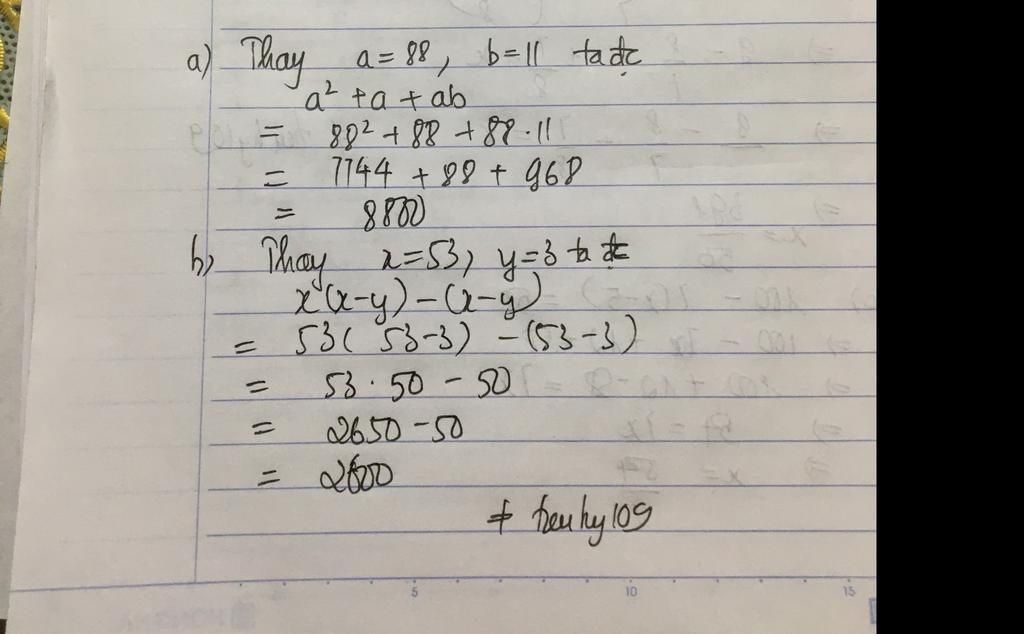 a) Thay a = 88, b = 11 ta đc
a² + a + ab
= 88² + 88 + 88 · 11
= 7744 + 88 + 968
= 8800
b) Thay x = 53, y = 3 ta đc
x(x-y) - (x-y)
= 53( 53-3) - (53-3)
= 53 · 50 - 50
= 2650 - 50
= 2600
5 10 15